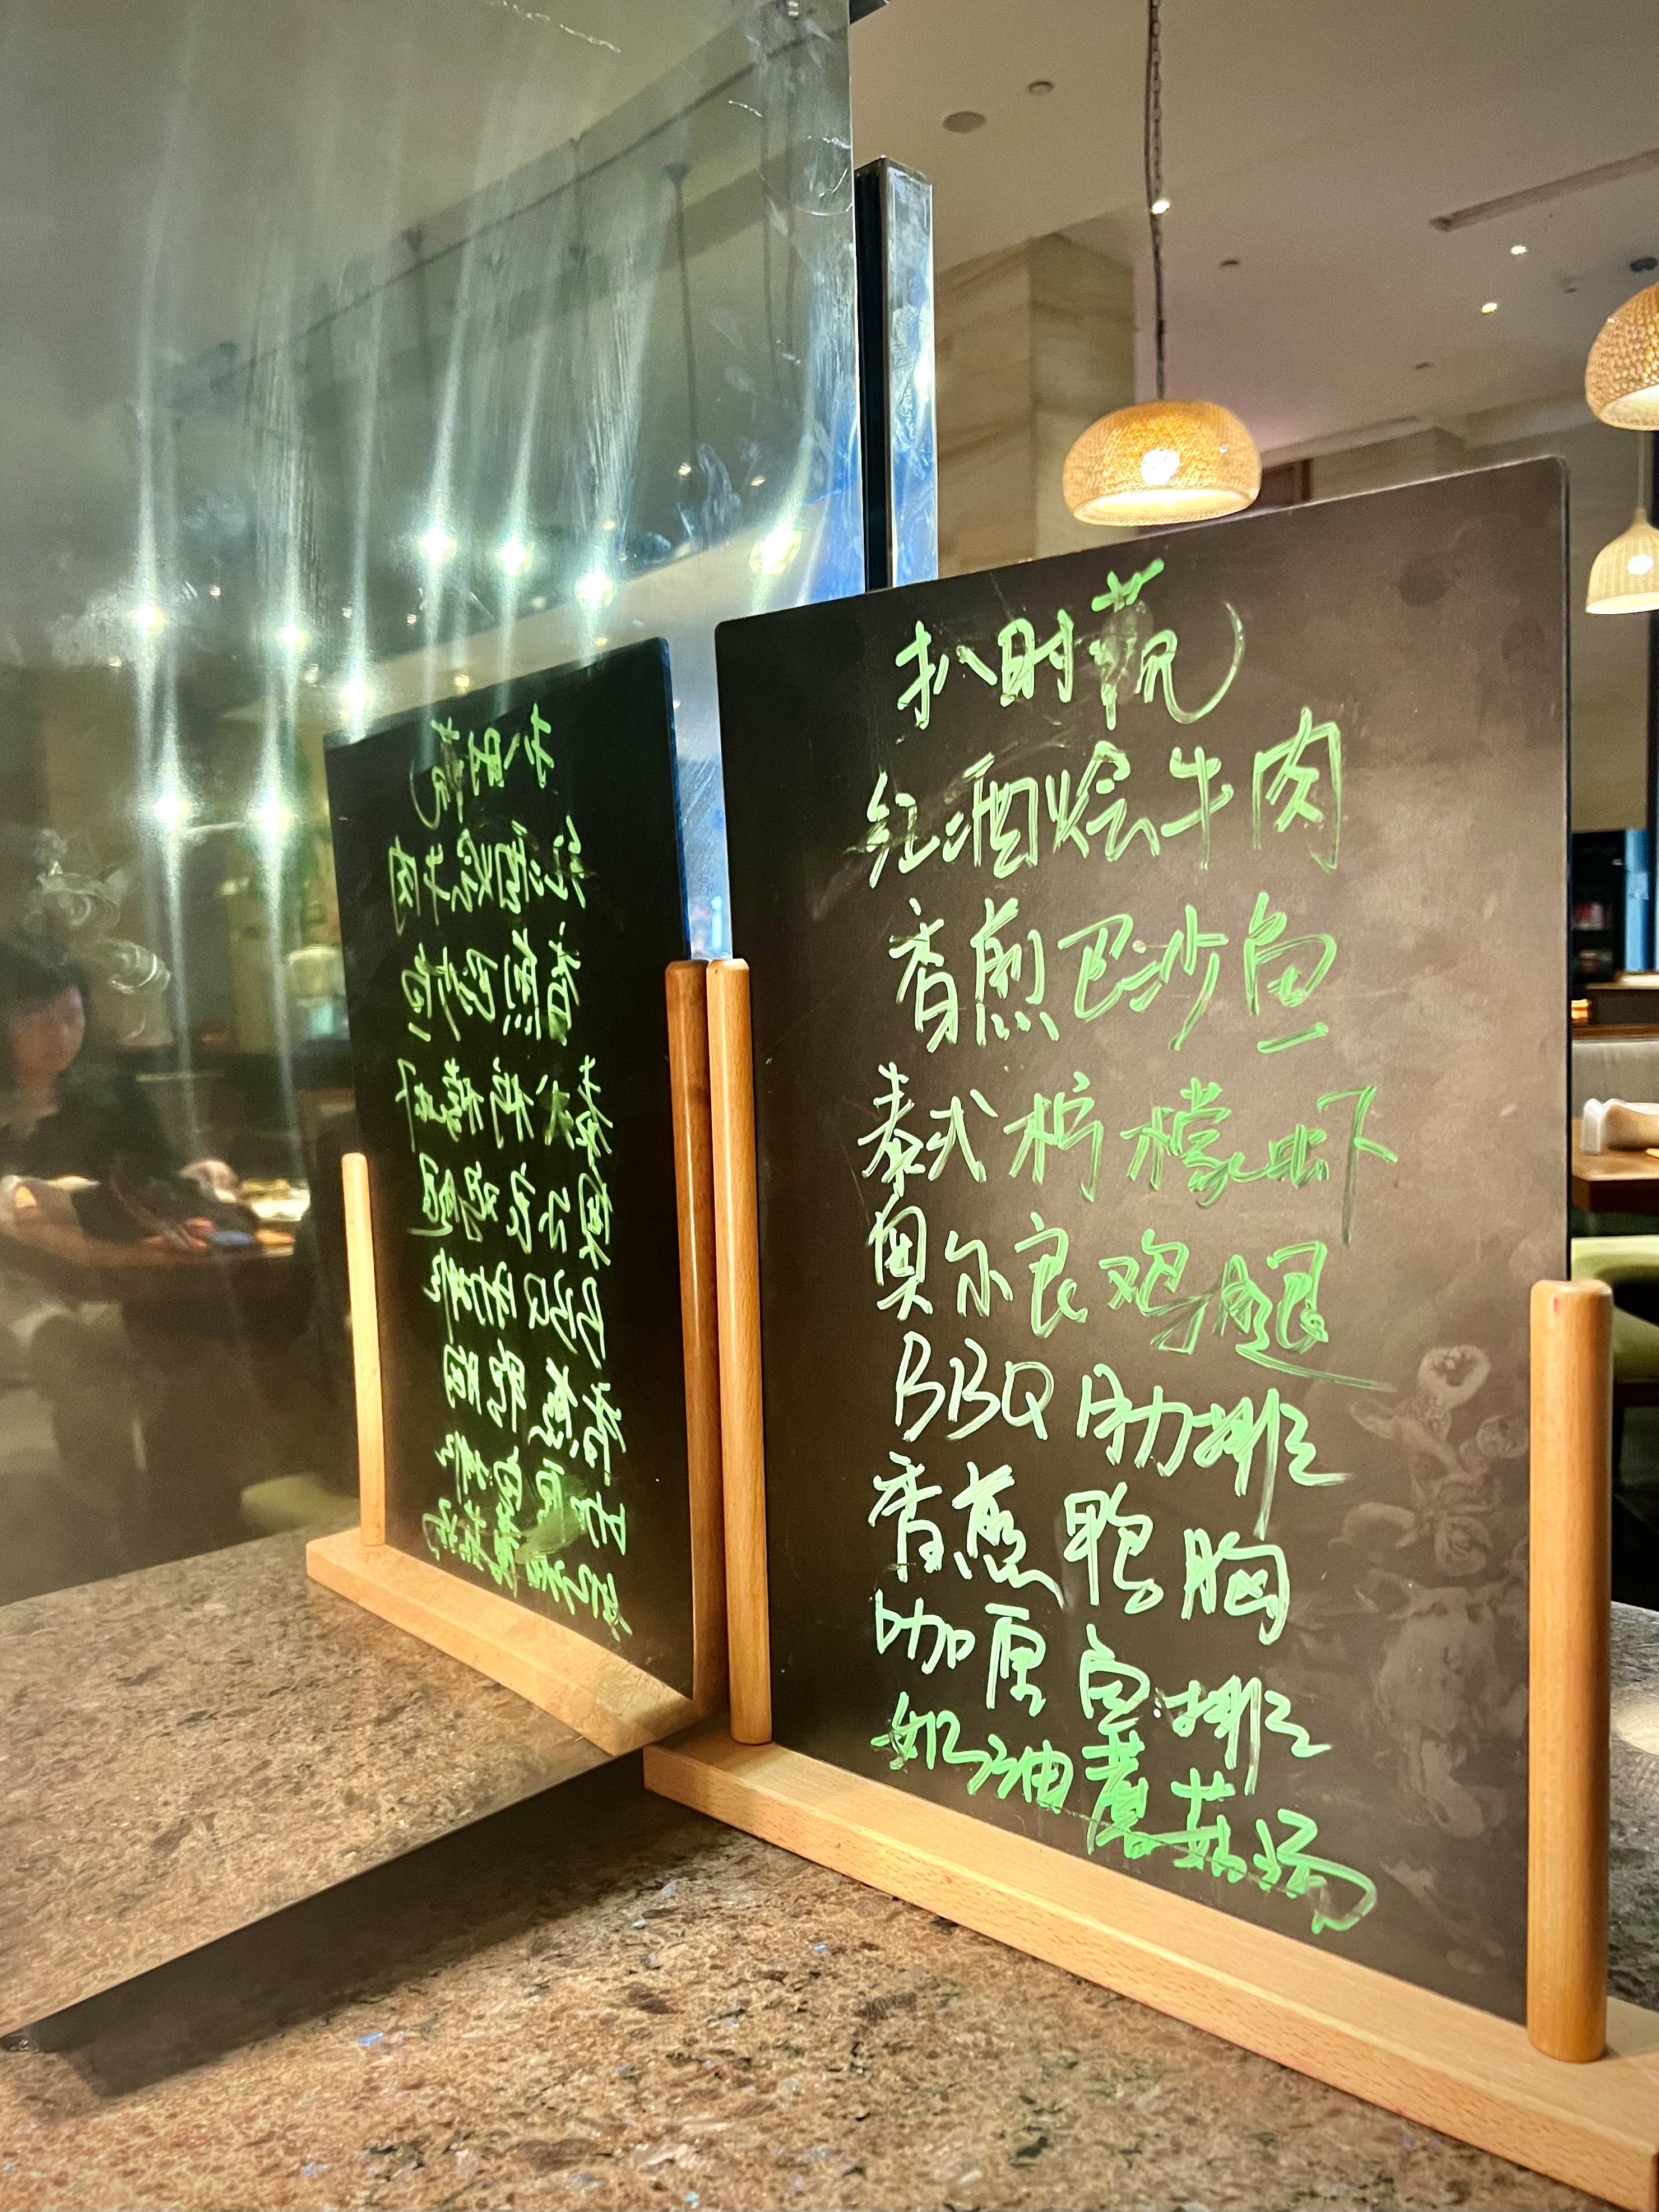 扒时蔬
红酒烩牛肉
香煎巴沙鱼
泰式柠檬虾
奥尔良鸡腿
BBQ肋排
香煎鸭胸
咖厘鱼排
奶油蘑菇汤